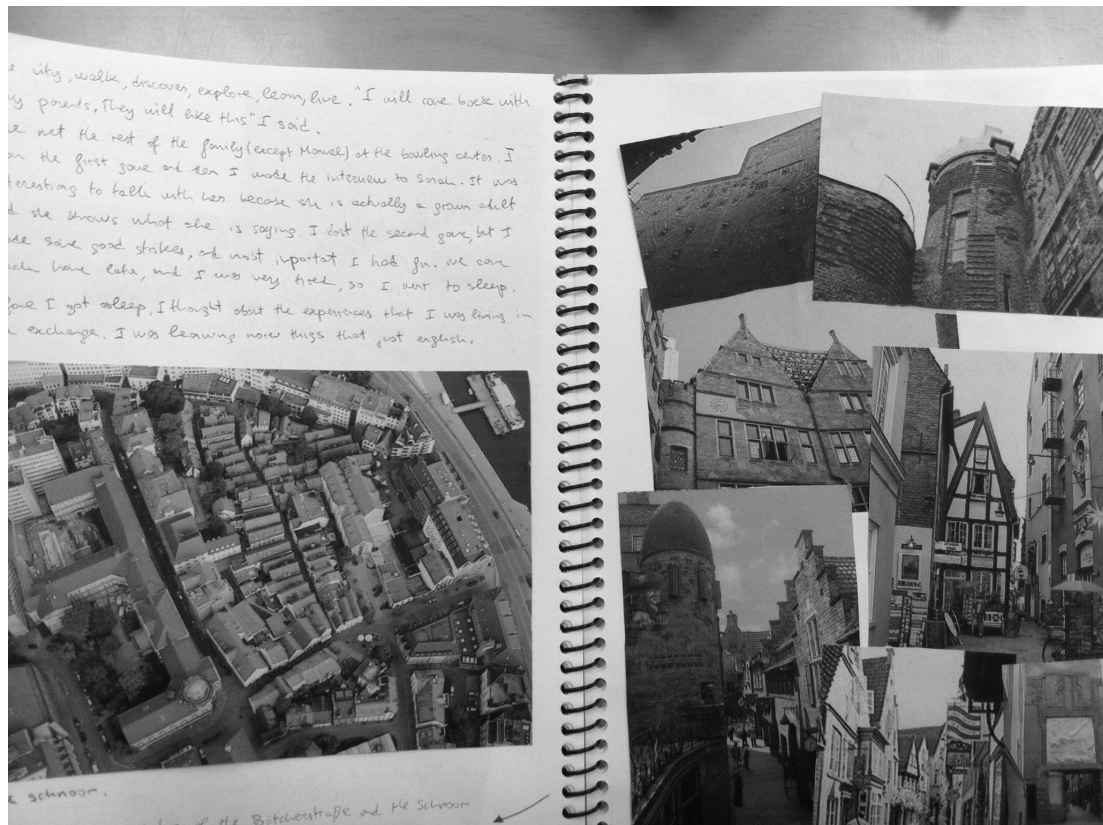 city, walk, discover, explore, learn, live. "I will come back with
my parents, They will like this" I said.
met the rest of the family (except Manuel) at the bowling center. I
the first game and then I made the interview to Sarah. It was
interesting to talk with her becase she is actually a grown adult
she knows what she is saying. I lost the second game, but I
some good strikes, and most inportat I had fun. we came
home late, and I was very tired, so I went to sleep.
I got asleep, I thought about the experiences that I was living in
exchange. I was learning more things that just english.
schnoor.
of the Bötcherstraße and the Schnoor